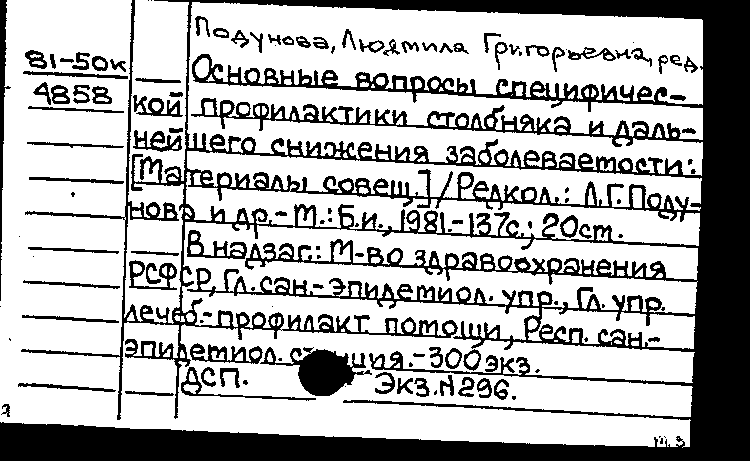 Подунова, Людмила Григорьевна, ред.
81-50к
4858
Основные вопросы специфичес-
кой профилактики столбняка и даль-
нейшего снижения заболеваемости:
[Материалы совещ.] / Редкол.: Л.Г. Поду-
нова и др. - М.: Б.и., 1981. - 137с.; 20см.
В надзаг.: М-во здравоохранения
РСФСР, Гл. сан.-эпидемиол. упр., Гл. упр.
лечеб.-профилакт. помощи, Респ. сан.-
эпидемиол. станция. - 300 экз.
ДСП. Экз. N 296.